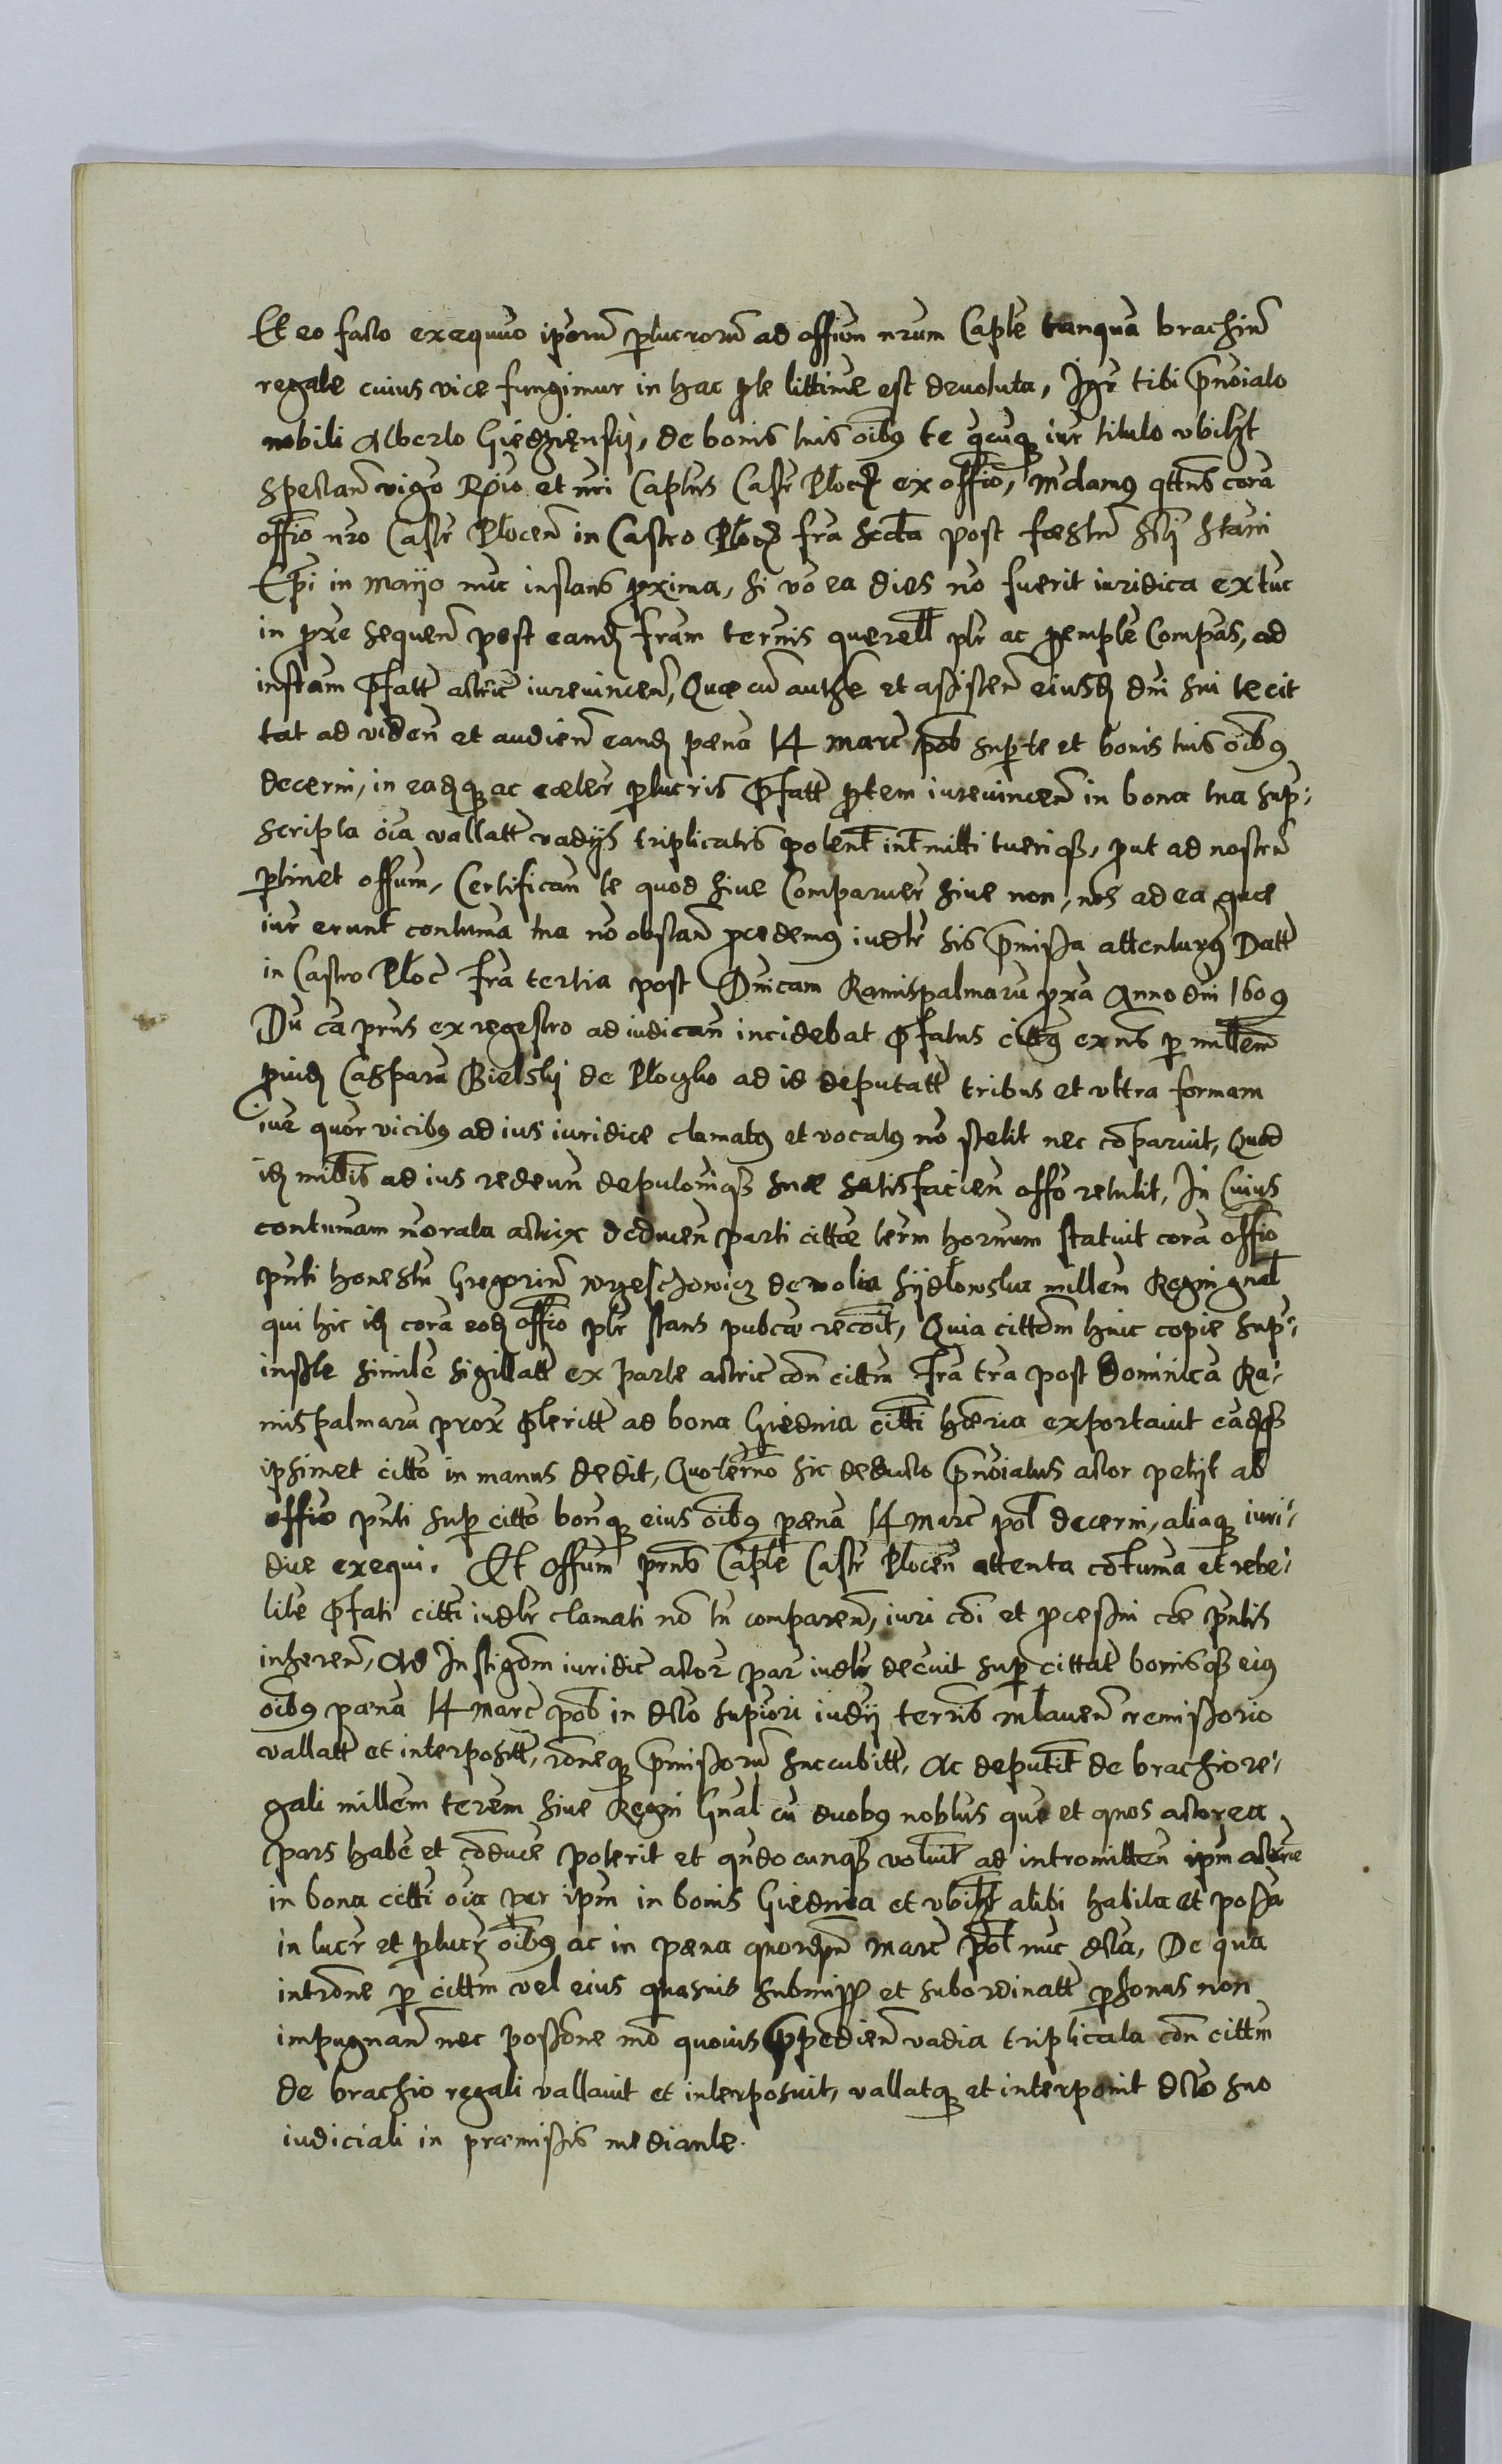 Et eo facto exequuo ipsorū perlucrorū ad offium nrum Caple tanqua brachiū
regale cuius vice fungimur in hac pte littime est devoluta, Igr tibi pnoialo
nobili Alberto Giedzienski, de bonis tuis oibus te qcuq iure titulo vbilzt
spectan vigo Rgio et nri Captus Castr Plocz ex offio, mdamus qtnus cora
offio nro Castr Plocen in Castro Plocz fra scda post faestu Scti Stani
Epi in Mayo nuc instans proxima, si vo ea dies no fuerit iuridica extuc
in proxe sequen post eand fram termis querell plr ac premple Compas, ad
instam pfatt actric iurevincen, Quae cu authe et assisten eiusd dni sui te cit
tat ad viden et audien eand paena 14 marc pol super te et bonis tuis oibus
decerni, in eadq ac caeter perlucris pfatt ptem iurevincen in bona tua sup-
scripta oia vallatt vadijs triplicatis polent intmitti tueriq, put ad nostru
ptinet offium, Certifican te quod siue Comparuer siue non, nos ad ea quae
iur erunt contuma tua no obstan pcedemus iudlr sis pmissa attenturus Datt
in Castro Ploc fra tertia post Dnicam Ramispalmaru pxa Anno dni 1609
Du ca prns ex regestro ad iudican incidebat pfatus cittus exns p millem
puid Casparu Bielski de Ploczko ad id deputatt tribus et vltra formam
iur quor vicibus ad ius iuridice clamatus et vocatus no stetit nec coparuit, Quod
id milis ad ius redeun depuloniq suae satisfacien offo retulit, In Cuius
contumam morata actrix deducen parti cittae term hornum statuit cora offio
pnti honestu Gregoriu Wrzeschowicz de wolia Sijdlowska millem Regni gnal
qui hic id cora eod offio plr stans pubce recoit, Quia cittom huic copie sup-
insple simile sigillatt ex parte actric con cittm fra tra post Dominica Ra-
mispalmaru prox pteritt ad bona Giednia citti haeria exportauit eadq
ipsimet citto in manus dedit, Quo termo sic deducto pnoialus actor petijt ab
offio pnti sup citto bonq eius oibus paena 14 marc pol decerni, aliaq iuri-
dice exequi. Et offium prns Caple Castr Plocen attenta cotuma et rebe-
lile pfati citti iudlr clamati no tn comparen, iuri coi et pcessui coe pntis
inheren, Ad Instigdm iuridic actor par iudlr decuit sup cittatt bonisq eius
oibus paena 14 marc pol in dcto supiori iudij terris mlauen remissorio
vallatt et interpositt, roneq pmissoru succubitt, Ac deputit de brachio re-
gali millem terem siue Regni Gnal cu duobus noblus que et quos actorea
pars habe et coduce poterit et qudocunq voluit ad intromitten ipm actore
in bona citti oia per ipm in bonis Giednia et vbilzt alibi habita et possa
in lucr et plucr oibus ac in paena quordem marc pol nuc dcta, De qua
introne p cittm vel eius quasuis submiss et subordinatt psonas non
impugnan nec possione mo quouis ppedien vadia triplicata con cittm
de brachio regali vallauit et interposuit, vallatq et interponit dcto suo
iudiciali in praemissis mediante.